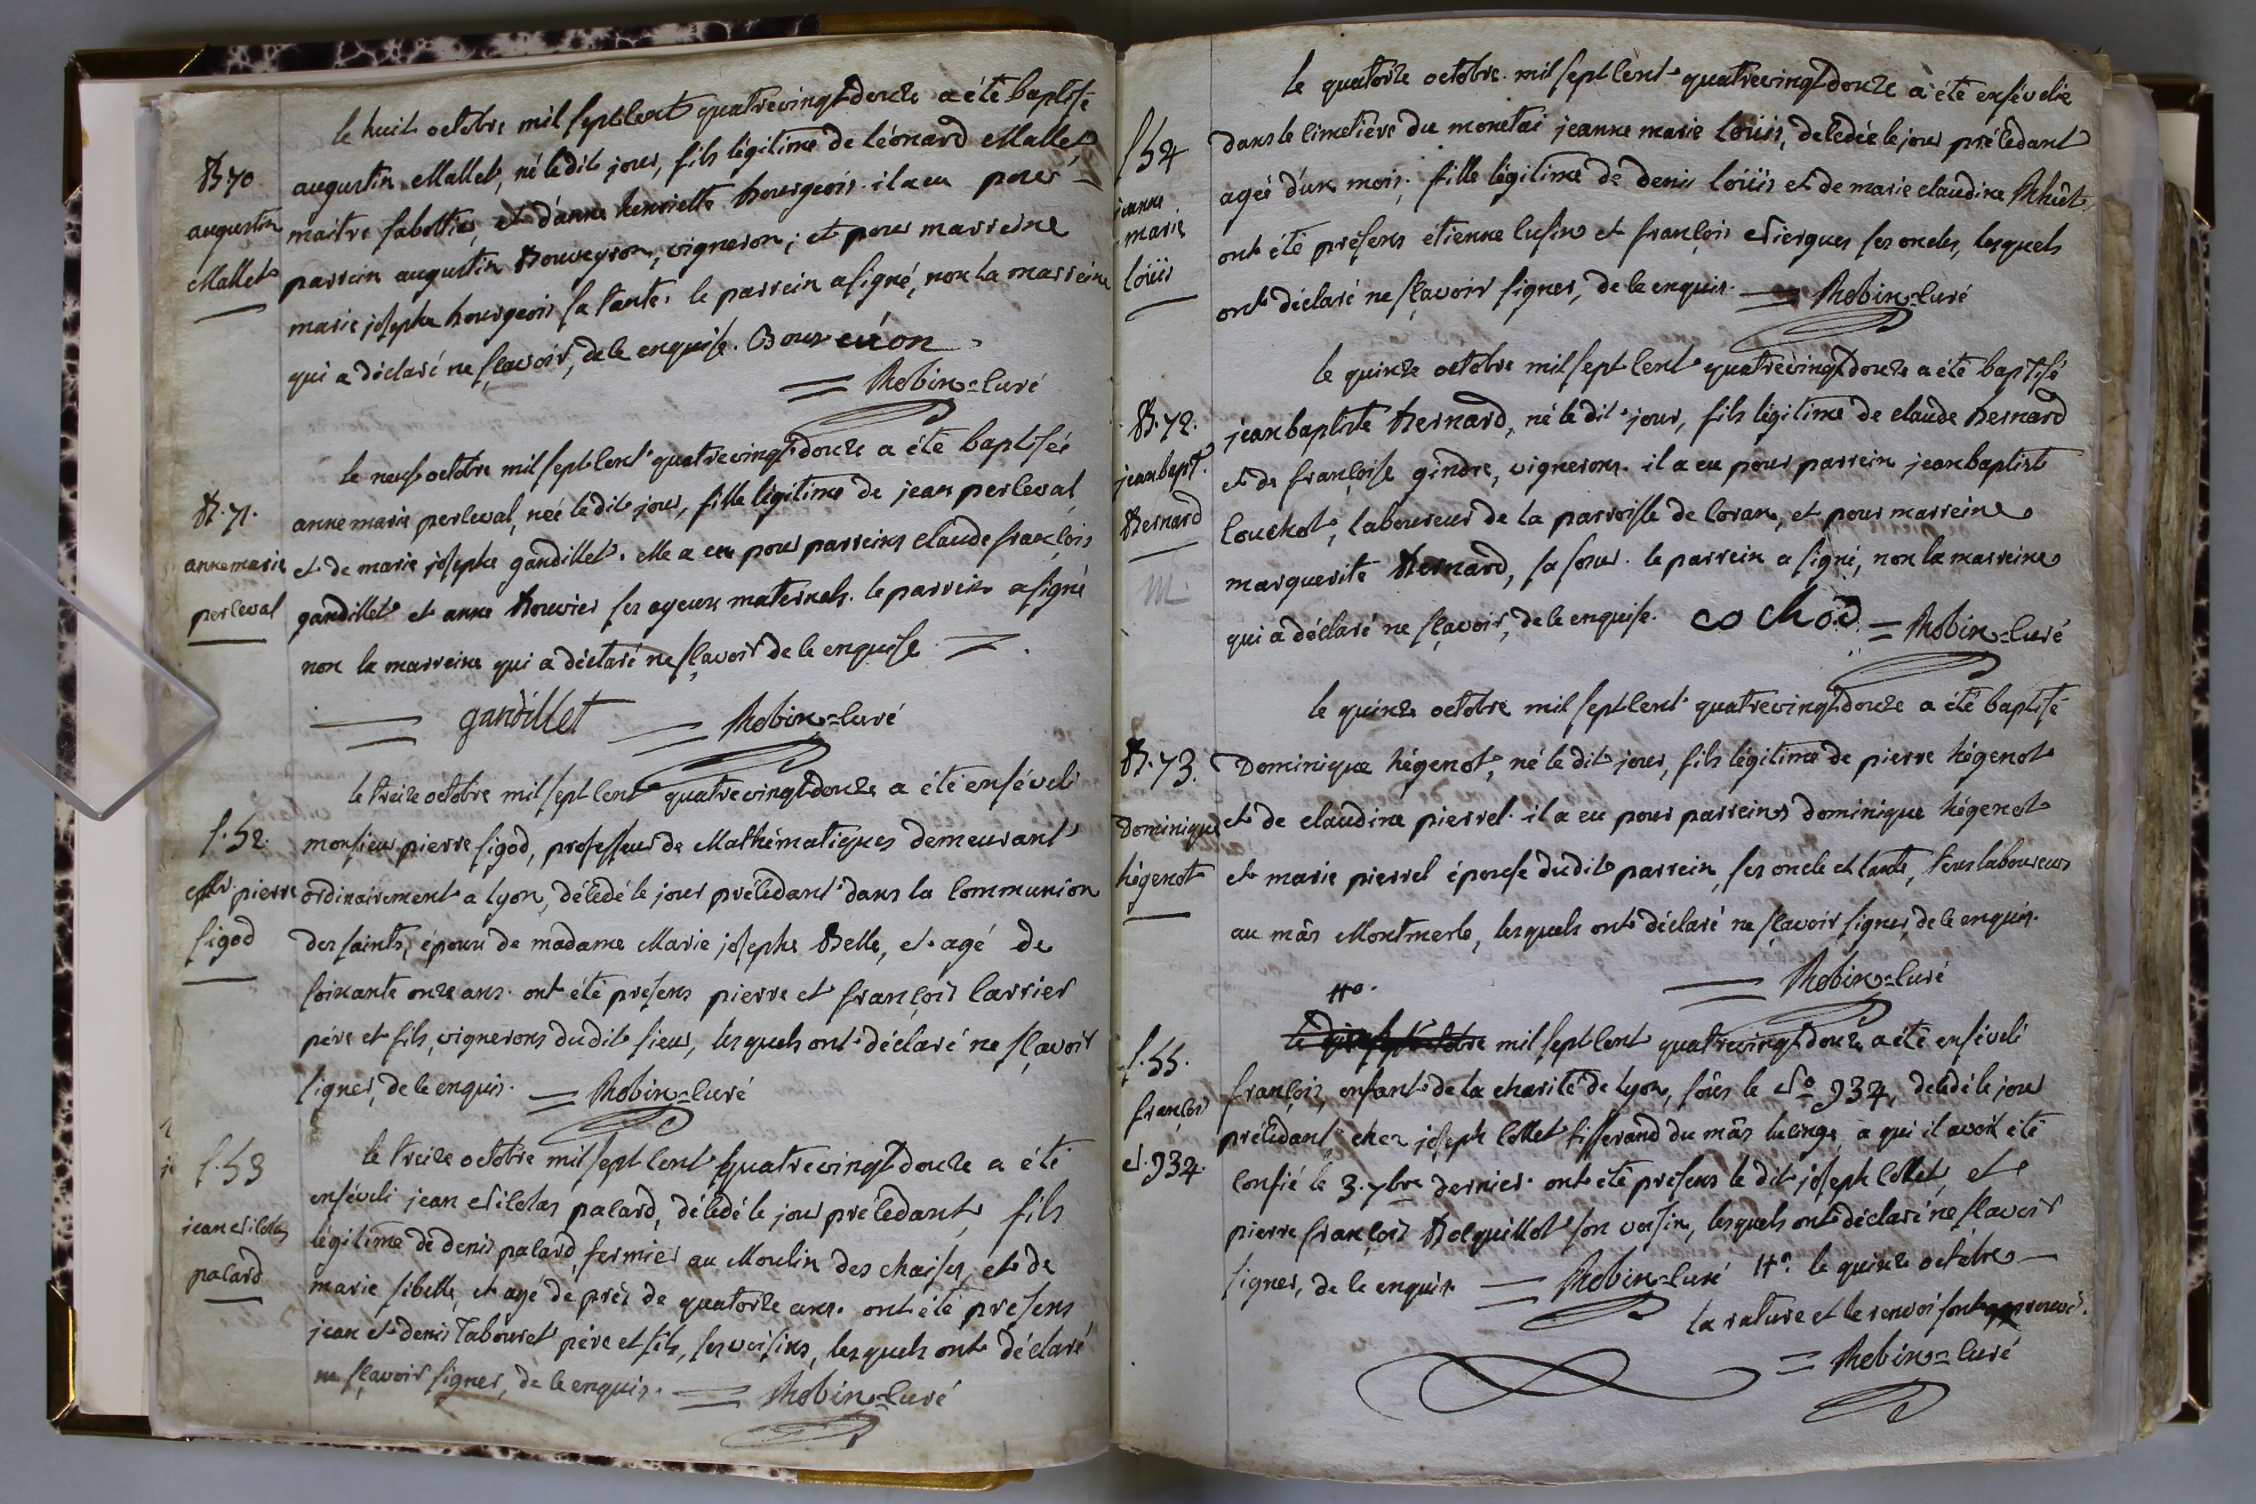 le huit octobre mil sept cent quatrevingt douze a été baptisé
B 70
augustin Mallet, né le dit jour, fils légitime de léonard Mallet,
augustin
maitre sabottier, et d'anne henriette bourgeois. il a eu pour
Mallet
parrein augustin Bouveyron, vigneron; et pour marreine
marie josephe bourgeois sa tante. le parrein a signé, non la marreine
qui a déclaré ne sçavoir, de ce enquise.
= Robin=curé
le neuf octobre mil sept cent quatrevingt douze a été baptisée
B. 71.
anne marie perceval, née le dit jour, fille légitime de jean perceval
anne marie
et de marie josephe gandillet. elle a eu pour parreins claude françois
perceval
gandillet et anne bouvier ses ayeux maternels. le parrein a signé
non la marreine qui a déclaré ne sçavoir de ce enquise =.
= gandillet = Robin=curé
le treize octobre mil sept cent quatrevingt douze a été enséveli
S. 52.
monsieur pierre sigod, professeur de Mathématiques demeurant
Mr. pierre
ordinairement a lyon, décedé le jour précedant dans la communion
sigod
des saints, époux de madame Marie josephe Belle, et agé de
soixante onze ans. ont été présens pierre et françois carrier
père et fils, vignerons dudit sieur, lesquels ont déclaré ne sçavoir
signer, de ce enquis. = Robin=curé
le treize octobre mil sept cent quatrevingt douze a été
S. 53
enséveli jean Nicolas palard, décedé le jour précedant, fils
jean Nicolas
légitime de denis palard, fermier au Moulin des chaises, et de
palard
marie sibelle, et agé de près de quatorze ans. ont été présens
jean et denis Tabouret père et fils, ses voisins, lesquels ont déclaré
ne sçavoir signer, de ce enquis. = Robin=curé
le quatorze octobre mil sept cent quatrevingt douze a été ensévelie
S 54
dans le cimetière du monetai jeanne marie Loüis, décedée le jour précedant
jeanne
agée d'un mois, fille légitime de denis loüis et de marie claudine
marie
ont été présens etienne et françois ses oncles, lesquels
loüis
ont déclaré ne sçavoir signer, de ce enquis. = Robin=curé
le quinze octobre mil sept cent quatrevingt douze a été baptisé
B. 72.
jean baptiste Bernard, né le dit jour, fils légitime de claude Bernard
jean bapt.
et de françoise gindre, vignerons. il a eu pour parrein jean baptiste
Bernard
couchot, laboureur de la parroisse de Coran, et pour marreine
marguerite Bernard, sa sœur. le parrein a signé, non la marreine
qui a déclaré ne sçavoir, de ce enquise. co chod = Robin=curé
le quinze octobre mil sept cent quatrevingt douze a été baptisé
B. 73.
Dominique hégenot, né le dit jour, fils légitime de pierre hégenot
Dominique
et de claudine pierrel. il a eu pour parreins dominique hégenot
hégenot
et marie pierrel épouse dudit parrein, ses oncle et tante, tous laboureurs
au mâs Montmerle, lesquels ont déclaré ne sçavoir signer, de ce enquis.
= Robin=curé
mil sept cent quatrevingt douze a été enséveli
S. 55.
françois, enfant de la charité de lyon, sous le No 934, décedé le jour
françois
précedant chez joseph collet tisserand du mâs lucinge, à qui il avoit été
N. 934.
confié le 3. 7bre dernier. ont été présens le dit joseph collet, et
pierre françois Bolquillot son voisin, lesquels ont déclaré ne sçavoir
signer, de ce enquis = Robin=curé #o. le quinze octobre
la rature et le renvoi sont approuvés.
= Robin=curé